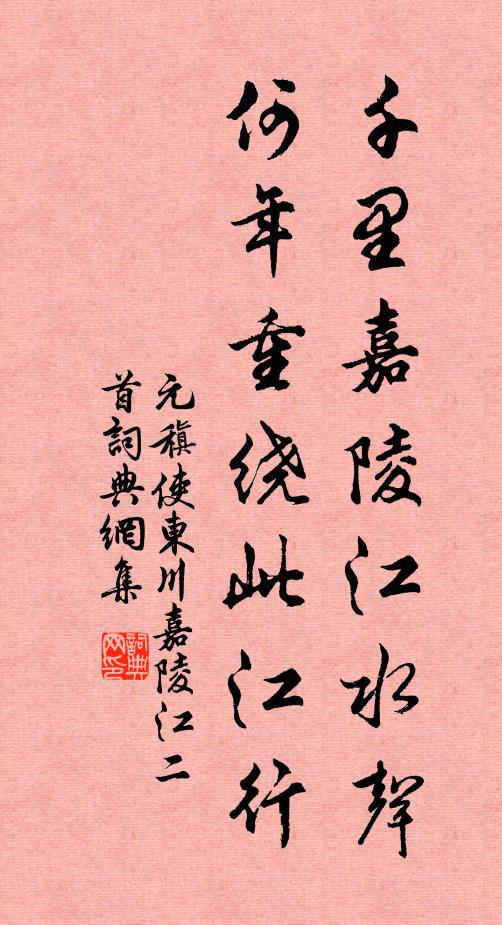 千里嘉陵江水聲
何年重绕此江行
元稹使東川嘉陵江二
首詞典網集
詞典網印